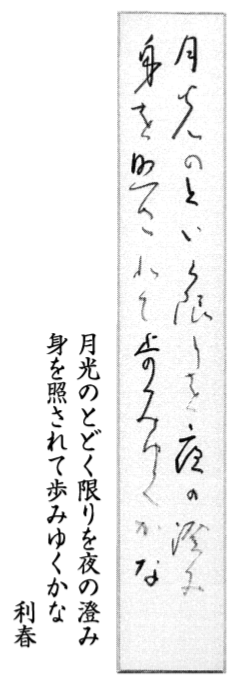 月光のとどく限りを夜の澄み
身を照されて歩みゆくかな
月光のとどく限りを夜の澄み
身を照されて歩みゆくかな
利春